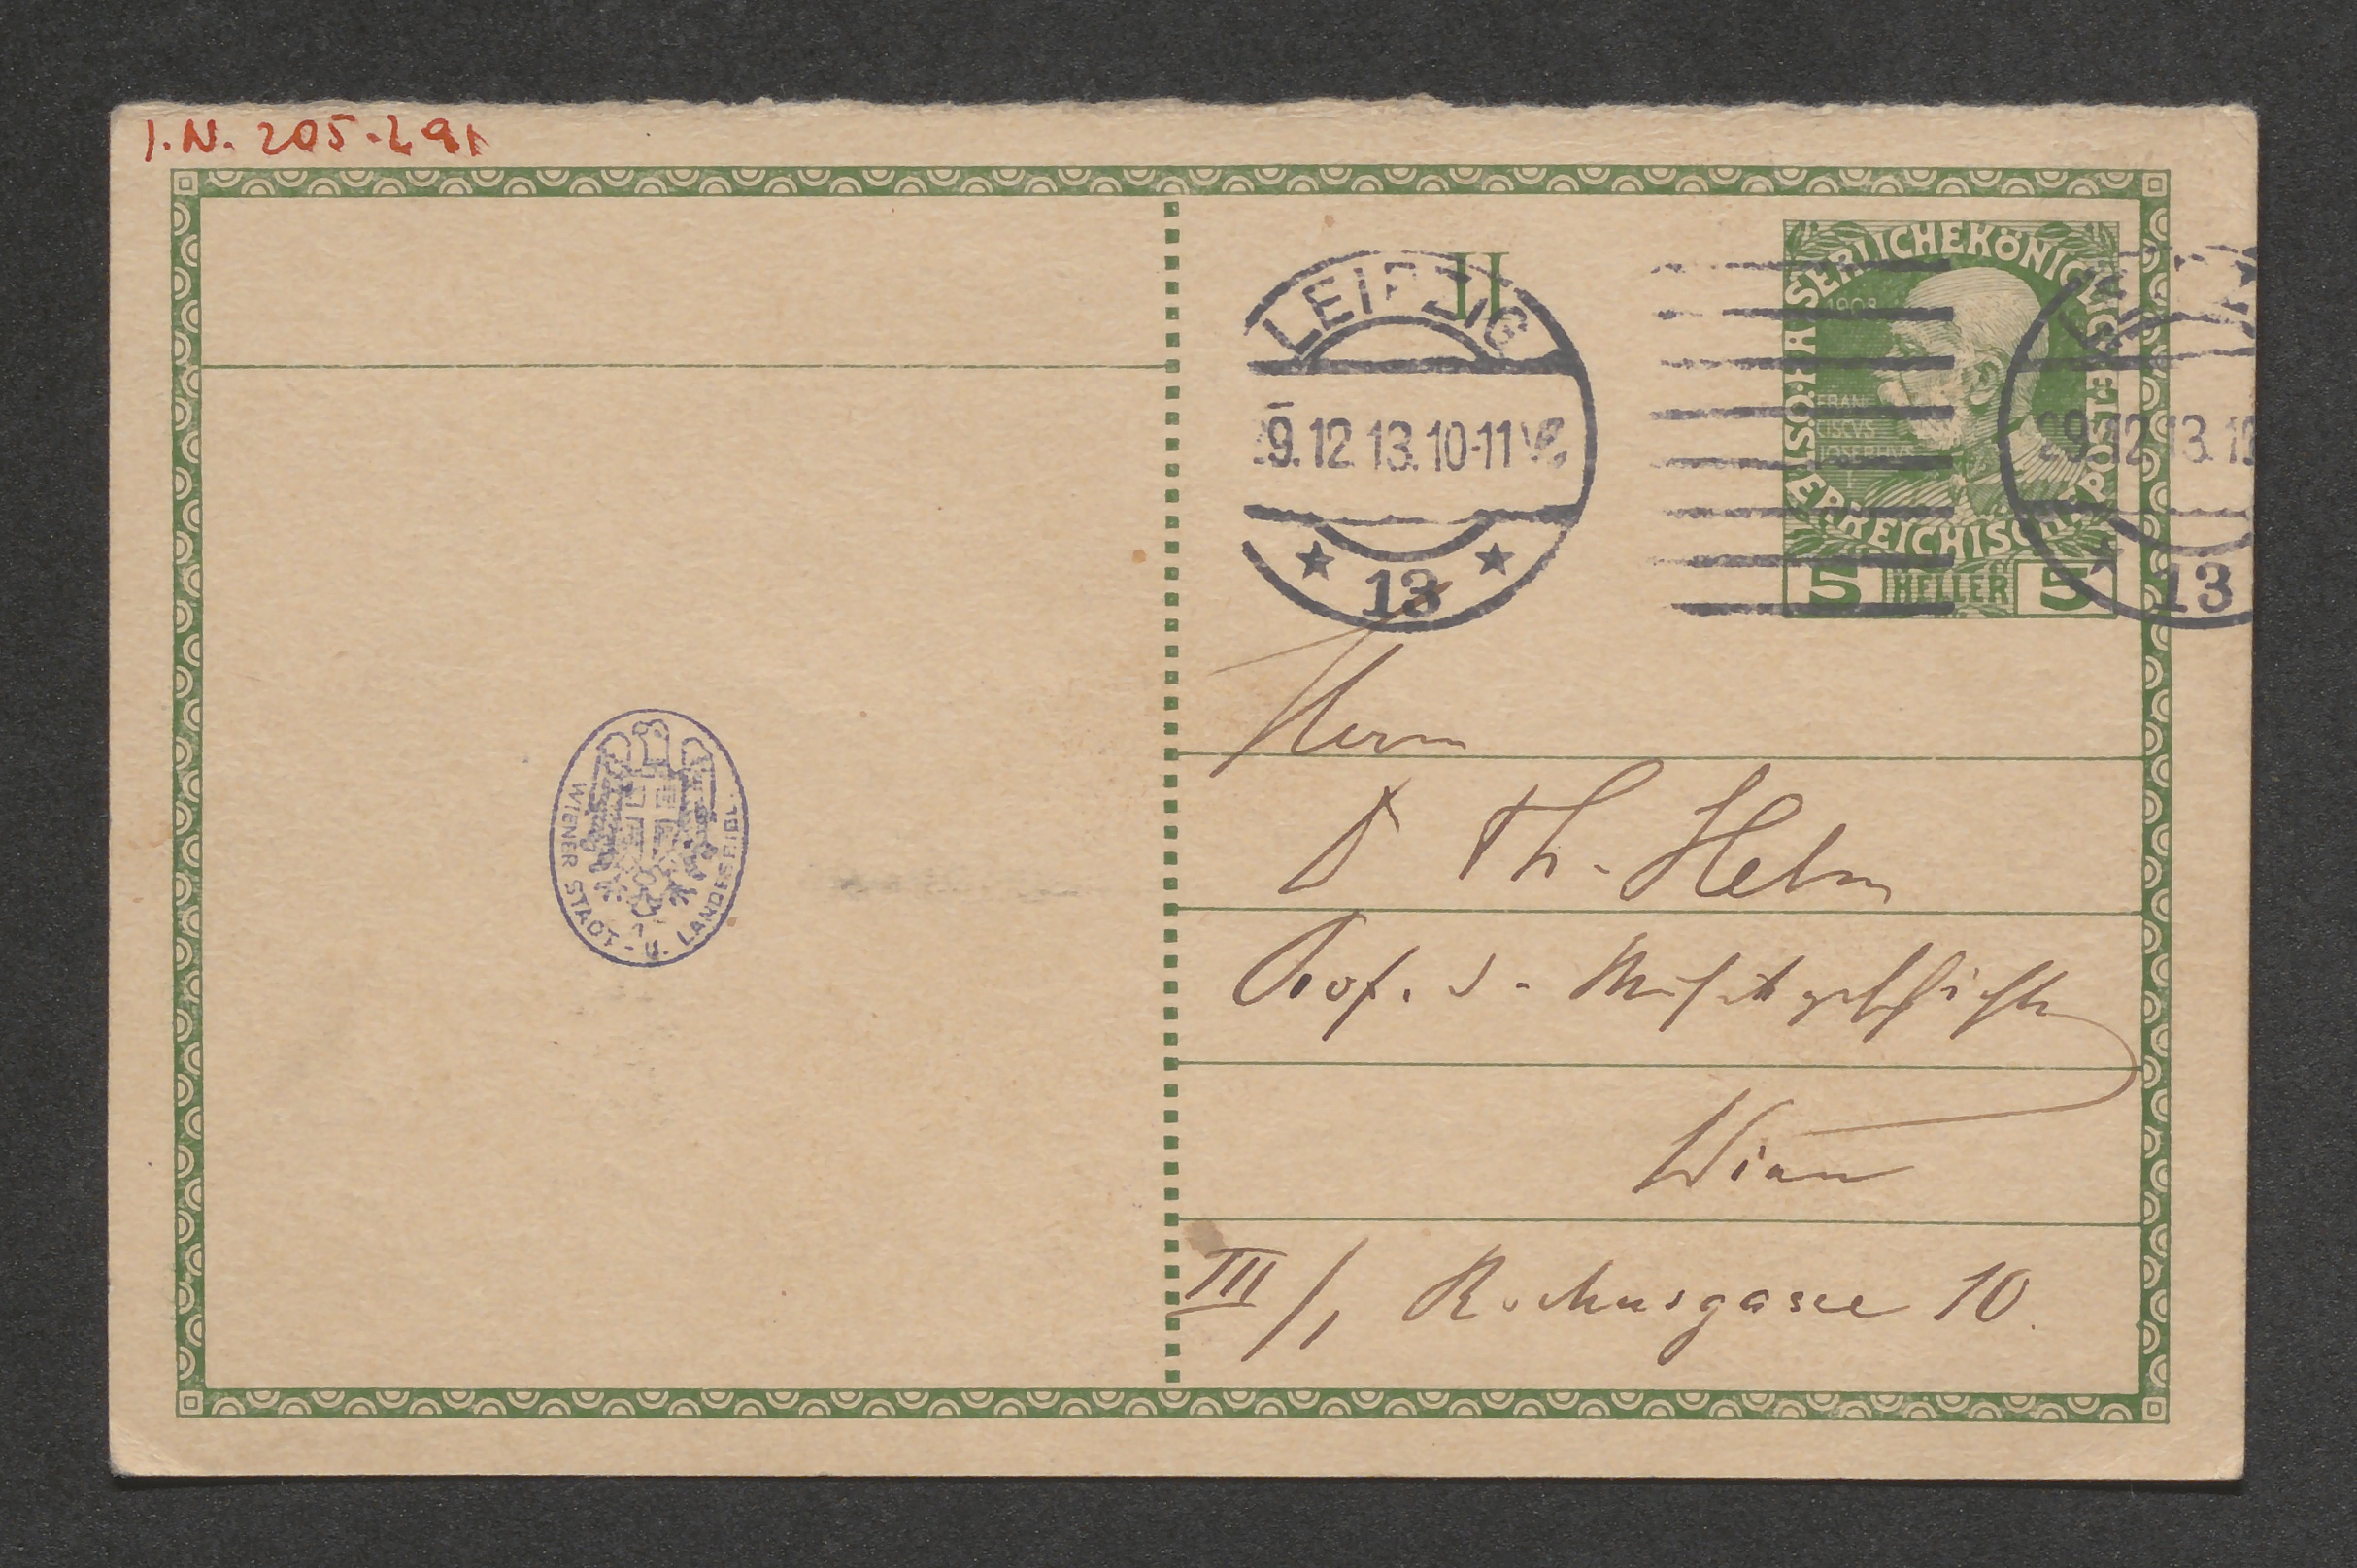 I.N. 205.291
LEIPZIG
29.12.13.10-11V
* 13 *
KAISERLICHE KÖNIGLICHE ÖSTERREICHISCHE POST
1908
FRAN
CISCVS
JOSEPHVS I
5 HELLER 5
29.12.13.10
13
Herrn
D Th. Helm
Prof. d. Musikgeschichte
Wien
III/1, Rochusgasse 10.
WIENER STADT- U. LANDESBIBL.